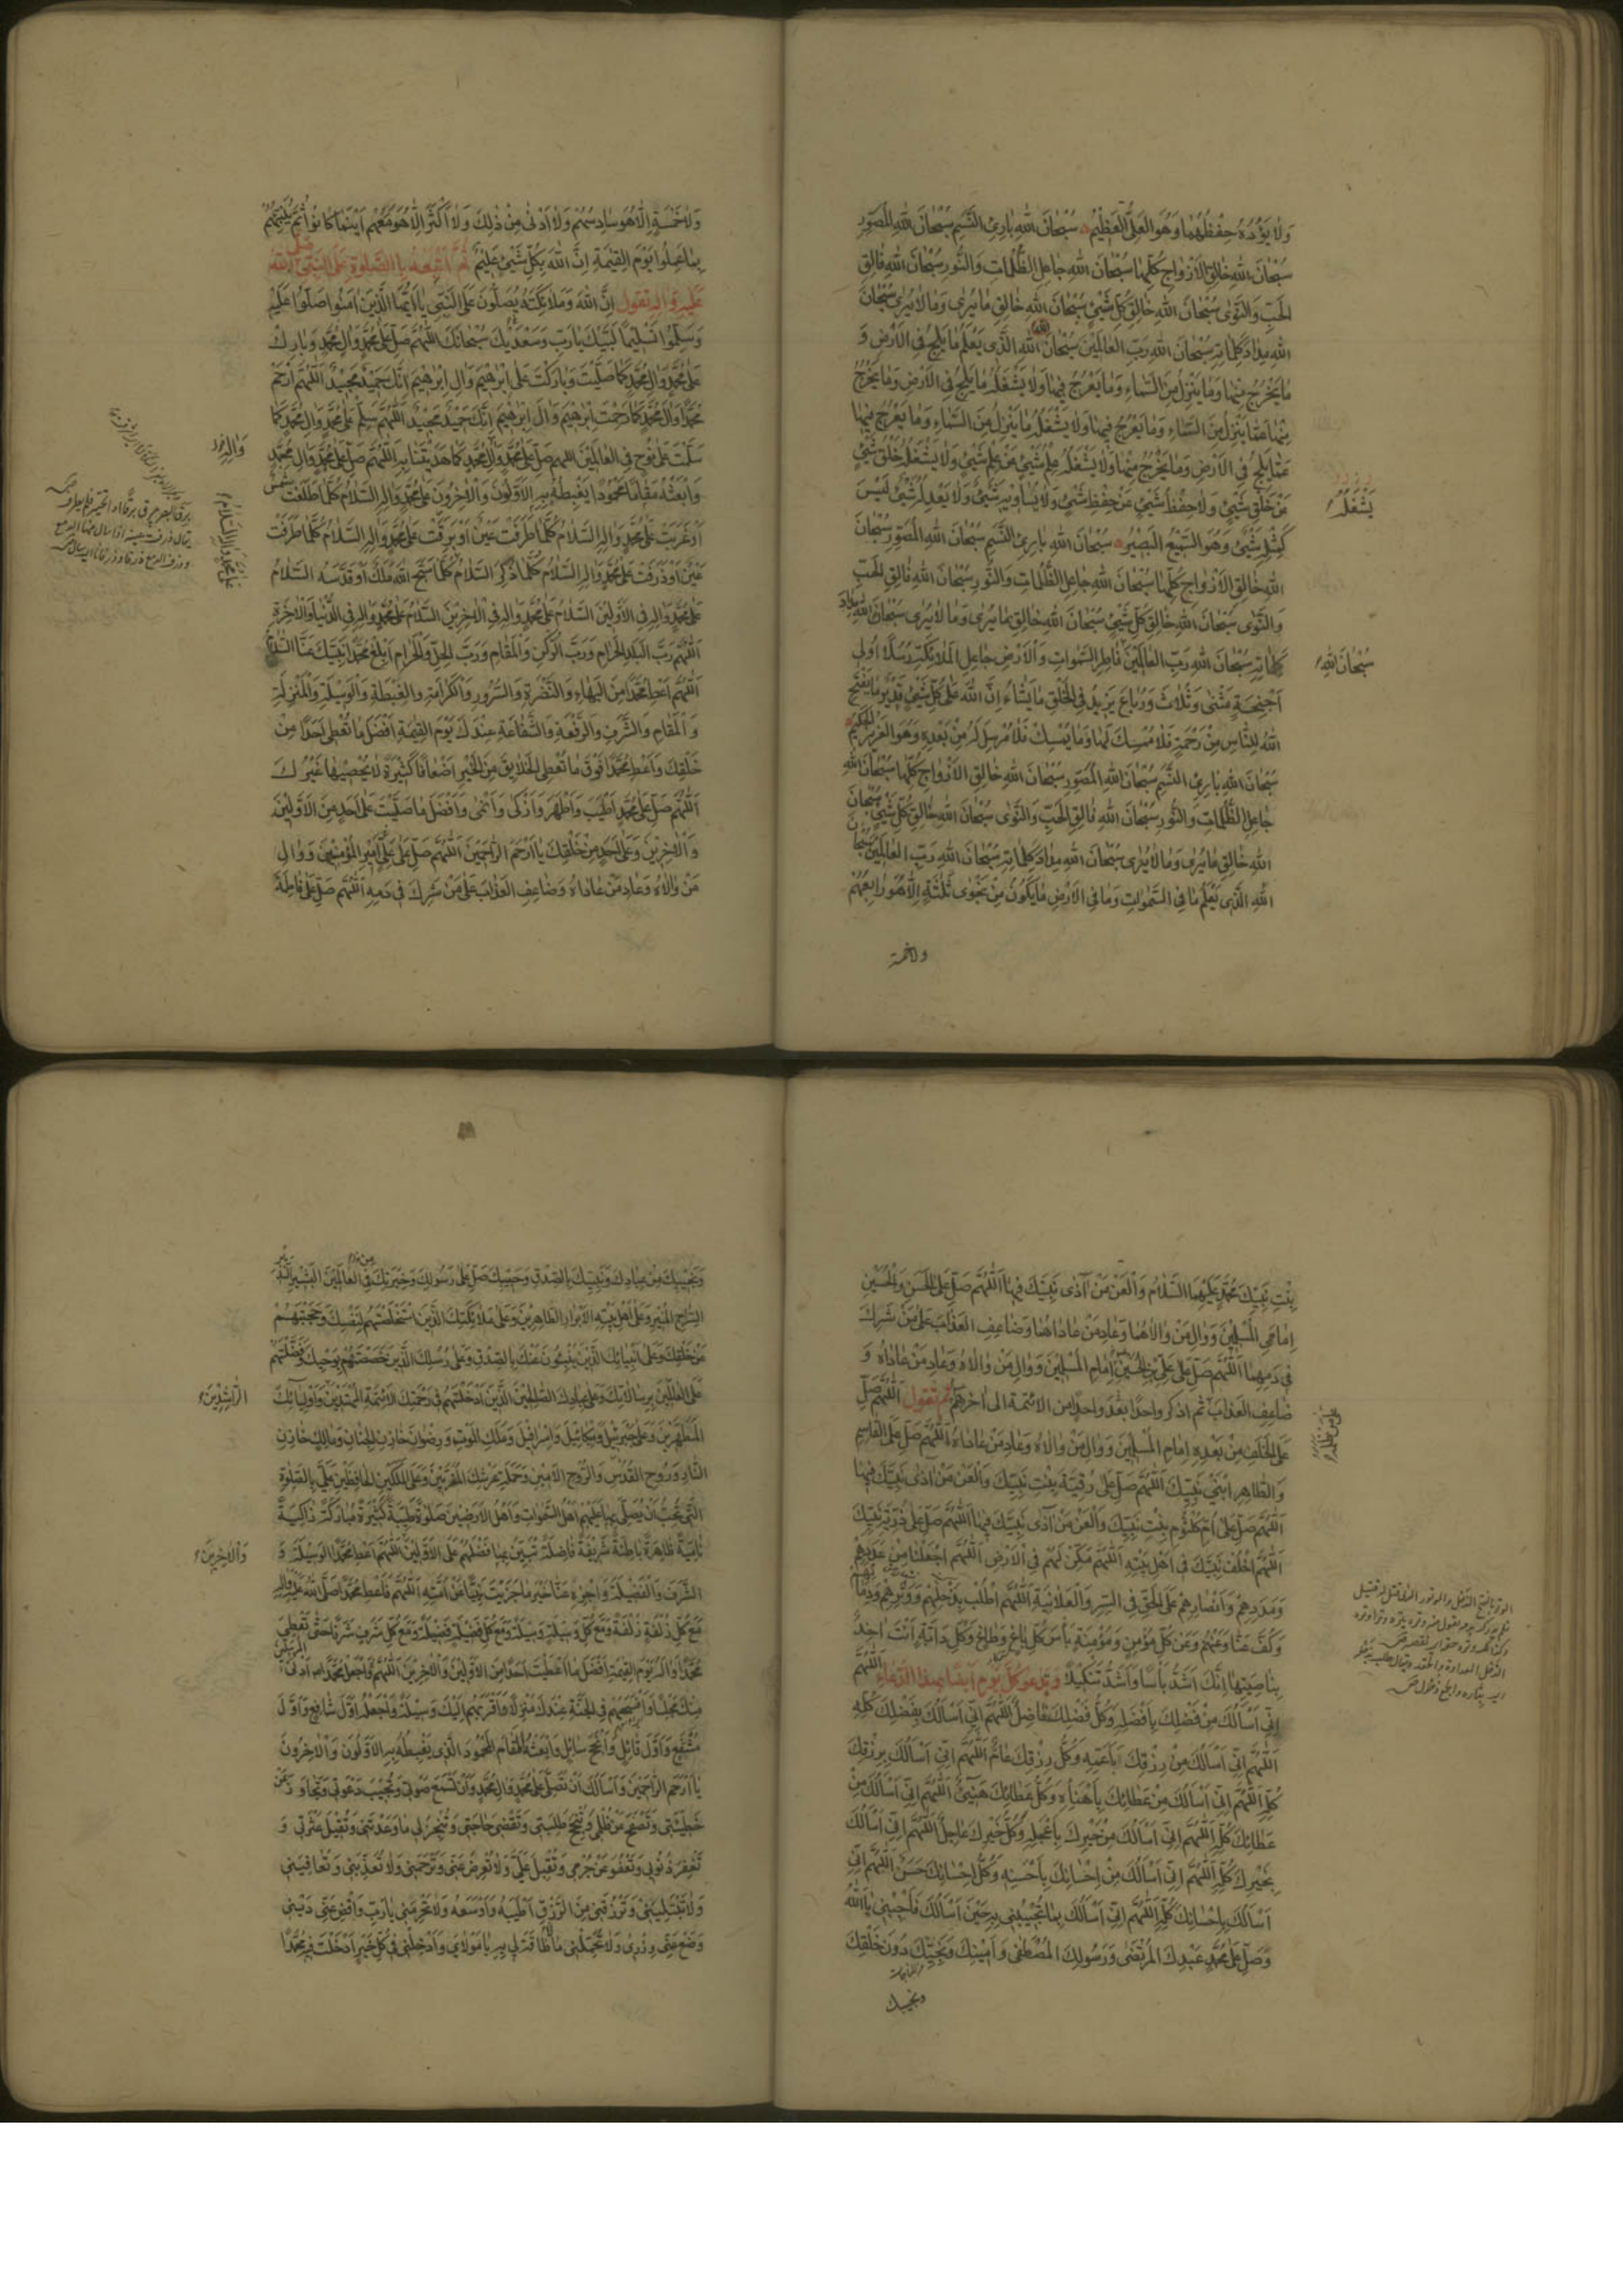 وَلَا يَؤُدُهُ حِفْظُهُمَا وَهُوَ الْعَلِيُّ الْعَظِيمُ سُبْحَانَ اللهِ بَارِئِ النَّسَمِ سُبْحَانَ اللهِ الْمُصَوِّرِ
سُبْحَانَ اللهِ خَالِقِ الْأَزْوَاجِ كُلِّهَا سُبْحَانَ اللهِ جَاعِلِ الظُّلُمَاتِ وَالنُّورِ سُبْحَانَ اللهِ فَالِقِ
الْحَبِّ وَالنَّوَى سُبْحَانَ اللهِ خَالِقِ كُلِّ شَيْءٍ سُبْحَانَ اللهِ خَالِقِ مَا يُرَى وَمَا لَا يُرَى سُبْحَانَ
اللهِ مِدَادَ كَلِمَاتِهِ سُبْحَانَ اللهِ رَبِّ الْعَالَمِينَ سُبْحَانَ اللهِ الَّذِي يَعْلَمُ مَا يَلِجُ فِي الْأَرْضِ وَ
مَا يَخْرُجُ مِنْهَا وَمَا يَنْزِلُ مِنَ السَّمَاءِ وَمَا يَعْرُجُ فِيهَا وَلَا يَشْغَلُهُ مَا يَلِجُ فِي الْأَرْضِ وَمَا يَخْرُجُ
مِنْهَا عَمَّا يَنْزِلُ مِنَ السَّمَاءِ وَمَا يَعْرُجُ فِيهَا وَلَا يَشْغَلُهُ مَا يَنْزِلُ مِنَ السَّمَاءِ وَمَا يَعْرُجُ فِيهَا
عَمَّا يَلِجُ فِي الْأَرْضِ وَمَا يَخْرُجُ مِنْهَا وَلَا يَشْغَلُهُ عِلْمُ شَيْءٍ عَنْ عِلْمِ شَيْءٍ وَلَا يَشْغَلُهُ خَلْقُ شَيْءٍ
عَنْ خَلْقِ شَيْءٍ وَلَا حِفْظُ شَيْءٍ عَنْ حِفْظِ شَيْءٍ وَلَا يُسَاوِيهِ شَيْءٌ وَلَا يَعْدِلُهُ شَيْءٌ لَيْسَ
يَشْغَلُهُ
كَمِثْلِهِ شَيْءٌ وَهُوَ السَّمِيعُ الْبَصِيرُ سُبْحَانَ اللهِ بَارِئِ النَّسَمِ سُبْحَانَ اللهِ الْمُصَوِّرِ سُبْحَانَ
اللهِ خَالِقِ الْأَزْوَاجِ كُلِّهَا سُبْحَانَ اللهِ جَاعِلِ الظُّلُمَاتِ وَالنُّورِ سُبْحَانَ اللهِ فَالِقِ الْحَبِّ
وَالنَّوَى سُبْحَانَ اللهِ خَالِقِ كُلِّ شَيْءٍ سُبْحَانَ اللهِ خَالِقِ مَا يُرَى وَمَا لَا يُرَى سُبْحَانَ اللهِ مِدَادَ
كَلِمَاتِهِ سُبْحَانَ اللهِ رَبِّ الْعَالَمِينَ فَاطِرِ السَّمٰوَاتِ وَالْأَرْضِ جَاعِلِ الْمَلَائِكَةِ رُسُلًا أُولِي
سُبْحَانَ اللهِ
أَجْنِحَةٍ مَثْنَى وَثُلَاثَ وَرُبَاعَ يَزِيدُ فِي الْخَلْقِ مَا يَشَاءُ إِنَّ اللهَ عَلَى كُلِّ شَيْءٍ قَدِيرٌ مَا يَفْتَحِ
اللهُ لِلنَّاسِ مِنْ رَحْمَةٍ فَلَا مُمْسِكَ لَهَا وَمَا يُمْسِكْ فَلَا مُرْسِلَ لَهُ مِنْ بَعْدِهِ وَهُوَ الْعَزِيزُ الْحَكِيمُ
سُبْحَانَ اللهِ بَارِئِ النَّسَمِ سُبْحَانَ اللهِ الْمُصَوِّرِ سُبْحَانَ اللهِ خَالِقِ الْأَزْوَاجِ كُلِّهَا سُبْحَانَ اللهِ
جَاعِلِ الظُّلُمَاتِ وَالنُّورِ سُبْحَانَ اللهِ فَالِقِ الْحَبِّ وَالنَّوَى سُبْحَانَ اللهِ خَالِقِ كُلِّ شَيْءٍ سُبْحَانَ
اللهِ خَالِقِ مَا يُرَى وَمَا لَا يُرَى سُبْحَانَ اللهِ مِدَادَ كَلِمَاتِهِ سُبْحَانَ اللهِ رَبِّ الْعَالَمِينَ سُبْحَانَ
اللهِ الَّذِي يَعْلَمُ مَا فِي السَّمٰوَاتِ وَمَا فِي الْأَرْضِ مَا يَكُونُ مِنْ نَجْوَى ثَلٰثَةٍ إِلَّا هُوَ رَابِعُهُمْ
ولا خمسة
وَلَا خَمْسَةٍ إِلَّا هُوَ سَادِسُهُمْ وَلَا أَدْنَى مِنْ ذَلِكَ وَلَا أَكْثَرَ إِلَّا هُوَ مَعَهُمْ أَيْنَمَا كَانُوا ثُمَّ يُنَبِّئُهُمْ
بِمَا عَمِلُوا يَوْمَ الْقِيٰمَةِ إِنَّ اللهَ بِكُلِّ شَيْءٍ عَلِيمٌ ثُمَّ أَتْبِعْهُ بِالصَّلٰوةِ عَلَى النَّبِيِّ صَلَّى اللهُ
عَلَيْهِ وَآلِهِ تَقُولُ إِنَّ اللهَ وَمَلَائِكَتَهُ يُصَلُّونَ عَلَى النَّبِيِّ يَا أَيُّهَا الَّذِينَ اٰمَنُوا صَلُّوا عَلَيْهِ
وَسَلِّمُوا تَسْلِيمًا لَبَّيْكَ يَا رَبِّ وَسَعْدَيْكَ سُبْحَانَكَ اللّٰهُمَّ صَلِّ عَلَى مُحَمَّدٍ وَآلِ مُحَمَّدٍ وَبَارِكْ
عَلَى مُحَمَّدٍ وَآلِ مُحَمَّدٍ كَمَا صَلَّيْتَ وَبَارَكْتَ عَلَى إِبْرٰهِيمَ وَآلِ إِبْرٰهِيمَ إِنَّكَ حَمِيدٌ مَجِيدٌ اللّٰهُمَّ ارْحَمْ
مُحَمَّدًا وَآلَ مُحَمَّدٍ كَمَا رَحِمْتَ إِبْرٰهِيمَ وَآلَ إِبْرٰهِيمَ إِنَّكَ حَمِيدٌ مَجِيدٌ اللّٰهُمَّ سَلِّمْ عَلَى مُحَمَّدٍ وَآلِ مُحَمَّدٍ كَمَا
سَلَّمْتَ عَلَى نُوحٍ فِي الْعَالَمِينَ اللّٰهُمَّ صَلِّ عَلَى مُحَمَّدٍ وَآلِ مُحَمَّدٍ كَمَا هَدَيْتَنَا بِهِ اللّٰهُمَّ صَلِّ عَلَى مُحَمَّدٍ وَآلِ مُحَمَّدٍ
وَابْعَثْهُ مَقَامًا مَحْمُودًا يَغْبِطُهُ بِهِ الْأَوَّلُونَ وَالْآخِرُونَ عَلَى مُحَمَّدٍ وَآلِهِ السَّلَامُ كُلَّمَا طَلَعَتْ شَمْسٌ
أَوْ غَرَبَتْ عَلَى مُحَمَّدٍ وَآلِهِ السَّلَامُ كُلَّمَا طَرَفَتْ عَيْنٌ أَوْ بَرَقَتْ عَلَى مُحَمَّدٍ وَآلِهِ السَّلَامُ كُلَّمَا طَرَفَتْ
عَيْنٌ أَوْ ذَرَفَتْ عَلَى مُحَمَّدٍ وَآلِهِ السَّلَامُ كُلَّمَا ذُكِرَ السَّلَامُ كُلَّمَا سَبَّحَ اللهَ مَلَكٌ أَوْ قَدَّسَهُ السَّلَامُ
عَلَى مُحَمَّدٍ وَآلِهِ السَّلَامُ
عَلَى مُحَمَّدٍ وَآلِهِ فِي الْأَوَّلِينَ السَّلَامُ عَلَى مُحَمَّدٍ وَآلِهِ فِي الْآخِرِينَ السَّلَامُ عَلَى مُحَمَّدٍ وَآلِهِ فِي الدُّنْيَا وَالْآخِرَةِ
اللّٰهُمَّ رَبَّ الْبَلَدِ الْحَرَامِ وَرَبَّ الرُّكْنِ وَالْمَقَامِ وَرَبَّ الْحِلِّ وَالْحَرَامِ أَبْلِغْ مُحَمَّدًا نَبِيَّكَ عَنَّا السَّلَامَ
اللّٰهُمَّ أَعْطِ مُحَمَّدًا مِنَ الْبَهَاءِ وَالنَّضْرَةِ وَالسُّرُورِ وَالْكَرَامَةِ وَالْغِبْطَةِ وَالْوَسِيلَةِ وَالْمَنْزِلَةِ
وَالْمَقَامِ وَالشَّرَفِ وَالرِّفْعَةِ وَالشَّفَاعَةِ عِنْدَكَ يَوْمَ الْقِيٰمَةِ أَفْضَلَ مَا تُعْطِي أَحَدًا مِنْ
خَلْقِكَ وَأَعْطِ مُحَمَّدًا فَوْقَ مَا تُعْطِي الْخَلَائِقَ مِنَ الْخَيْرِ أَضْعَافًا كَثِيرَةً لَا يُحْصِيهَا غَيْرُكَ
اللّٰهُمَّ صَلِّ عَلَى مُحَمَّدٍ أَطْيَبَ وَأَطْهَرَ وَأَزْكَى وَأَنْمَى وَأَفْضَلَ مَا صَلَّيْتَ عَلَى أَحَدٍ مِنَ الْأَوَّلِينَ
وَالْآخِرِينَ وَعَلَى أَحَدٍ مِنْ خَلْقِكَ يَا أَرْحَمَ الرَّاحِمِينَ اللّٰهُمَّ صَلِّ عَلَى عَلِيٍّ أَمِيرِ الْمُؤْمِنِينَ وَوَالِ
مَنْ وَالَاهُ وَعَادِ مَنْ عَادَاهُ وَضَاعِفِ الْعَذَابَ عَلَى مَنْ شَرِكَ فِي دَمِهِ اللّٰهُمَّ صَلِّ عَلَى فَاطِمَةَ
بِنْتِ نَبِيِّكَ مُحَمَّدٍ عَلَيْهِمَا السَّلَامُ وَالْعَنْ مَنْ آذَى نَبِيَّكَ فِيهَا اللّٰهُمَّ صَلِّ عَلَى الْحَسَنِ وَالْحُسَيْنِ
إِمَامَيِ الْمُسْلِمِينَ وَوَالِ مَنْ وَالَاهُمَا وَعَادِ مَنْ عَادَاهُمَا وَضَاعِفِ الْعَذَابَ عَلَى مَنْ شَرِكَ
فِي دَمِهِمَا اللّٰهُمَّ صَلِّ عَلَى عَلِيِّ بْنِ الْحُسَيْنِ إِمَامِ الْمُسْلِمِينَ وَوَالِ مَنْ وَالَاهُ وَعَادِ مَنْ عَادَاهُ وَ
ضَاعِفِ الْعَذَابَ ثم اذكر واحدًا بَعْدَ واحدٍ من الائمة الى اٰخرهم ثُمَّ تَقُولُ اللّٰهُمَّ صَلِّ
عَلَى مَنْ ظَلَمَهُ
عَلَى الْخَلَفِ مِنْ بَعْدِهِ إِمَامِ الْمُسْلِمِينَ وَوَالِ مَنْ وَالَاهُ وَعَادِ مَنْ عَادَاهُ اللّٰهُمَّ صَلِّ عَلَى الْقَاسِمِ
وَالطَّاهِرِ ابْنَيْ نَبِيِّكَ اللّٰهُمَّ صَلِّ عَلَى رُقَيَّةَ بِنْتِ نَبِيِّكَ وَالْعَنْ مَنْ آذَى نَبِيَّكَ فِيهَا
اللّٰهُمَّ صَلِّ عَلَى أُمِّ كُلْثُومِ بِنْتِ نَبِيِّكَ وَالْعَنْ مَنْ آذَى نَبِيَّكَ فِيهَا اللّٰهُمَّ صَلِّ عَلَى ذُرِّيَّةِ نَبِيِّكَ
اللّٰهُمَّ اخْلُفْ نَبِيَّكَ فِي أَهْلِ بَيْتِهِ اللّٰهُمَّ مَكِّنْ لَهُمْ فِي الْأَرْضِ اللّٰهُمَّ اجْعَلْنَا مِنْ عَدَدِهِمْ
وَمَدَدِهِمْ وَأَنْصَارِهِمْ عَلَى الْحَقِّ فِي السِّرِّ وَالْعَلَانِيَةِ اللّٰهُمَّ اطْلُبْ بِذَحْلِهِمْ وَوِتْرِهِمْ وَدِمَائِهِمْ
وَكُفَّ عَنَّا وَعَنْهُمْ وَعَنْ كُلِّ مُؤْمِنٍ وَمُؤْمِنَةٍ بَأْسَ كُلِّ بَاغٍ وَطَاغٍ وَكُلِّ دَابَّةٍ أَنْتَ اٰخِذٌ
بِنَاصِيَتِهَا إِنَّكَ أَشَدُّ بَأْسًا وَأَشَدُّ تَنْكِيلًا وَتَدْعُو كُلَّ يَوْمٍ أَيْضًا بِهٰذَا الدُّعَاءِ اللّٰهُمَّ
إِنِّي أَسْأَلُكَ مِنْ فَضْلِكَ بِأَفْضَلِهِ وَكُلُّ فَضْلِكَ فَاضِلٌ اللّٰهُمَّ إِنِّي أَسْأَلُكَ بِفَضْلِكَ كُلِّهِ
اللّٰهُمَّ إِنِّي أَسْأَلُكَ مِنْ رِزْقِكَ بِأَعَمِّهِ وَكُلُّ رِزْقِكَ عَامٌّ اللّٰهُمَّ إِنِّي أَسْأَلُكَ بِرِزْقِكَ
كُلِّهِ اللّٰهُمَّ إِنِّي أَسْأَلُكَ مِنْ عَطَائِكَ بِأَهْنَئِهِ وَكُلُّ عَطَائِكَ هَنِيءٌ اللّٰهُمَّ إِنِّي أَسْأَلُكَ مِنْ
عَطَائِكَ كُلِّهِ اللّٰهُمَّ إِنِّي أَسْأَلُكَ مِنْ خَيْرِكَ بِأَعْجَلِهِ وَكُلُّ خَيْرِكَ عَاجِلٌ اللّٰهُمَّ إِنِّي أَسْأَلُكَ
بِخَيْرِكَ كُلِّهِ اللّٰهُمَّ إِنِّي أَسْأَلُكَ مِنْ إِحْسَانِكَ بِأَحْسَنِهِ وَكُلُّ إِحْسَانِكَ حَسَنٌ اللّٰهُمَّ إِنِّي
أَسْأَلُكَ بِإِحْسَانِكَ كُلِّهِ اللّٰهُمَّ إِنِّي أَسْأَلُكَ بِمَا تُجِيبُنِي بِهِ حِينَ أَسْأَلُكَ فَأَجِبْنِي يَا اَللهُ
وَصَلِّ عَلَى مُحَمَّدٍ عَبْدِكَ الْمُرْتَضَى وَرَسُولِكَ الْمُصْطَفَى وَأَمِينِكَ وَنَجِيِّكَ دُونَ خَلْقِكَ
ونجيبك
وَنَجِيبِكَ مِنْ عِبَادِكَ وَنَبِيِّكَ بِالصِّدْقِ وَحَبِيبِكَ صَلِّ عَلَى رَسُولِكَ وَخِيَرَتِكَ مِنَ الْعَالَمِينَ الْبَشِيرِ النَّذِيرِ
السِّرَاجِ الْمُنِيرِ وَعَلَى أَهْلِ بَيْتِهِ الْأَبْرَارِ الطَّاهِرِينَ وَعَلَى مَلَائِكَتِكَ الَّذِينَ اسْتَخْلَصْتَهُمْ لِنَفْسِكَ وَحَجَبْتَهُمْ
عَنْ خَلْقِكَ وَعَلَى أَنْبِيَائِكَ الَّذِينَ يُنْبِئُونَ عَنْكَ بِالصِّدْقِ وَعَلَى رُسُلِكَ الَّذِينَ خَصَصْتَهُمْ بِوَحْيِكَ وَفَضَّلْتَهُمْ
عَلَى الْعَالَمِينَ بِرِسَالَاتِكَ وَعَلَى عِبَادِكَ الصَّالِحِينَ الَّذِينَ أَدْخَلْتَهُمْ فِي رَحْمَتِكَ الْأَئِمَّةِ الْمُهْتَدِينَ وَأَوْلِيَائِكَ
الرَّاشِدِينَ
الْمُطَهَّرِينَ وَعَلَى جَبْرَئِيلَ وَمِيكَائِيلَ وَإِسْرَافِيلَ وَمَلَكِ الْمَوْتِ وَرِضْوَانَ خَازِنِ الْجِنَانِ وَمَالِكٍ خَازِنِ
النَّارِ وَرُوحِ الْقُدُسِ وَالرُّوحِ الْأَمِينِ وَحَمَلَةِ عَرْشِكَ الْمُقَرَّبِينَ وَعَلَى الْمَلَكَيْنِ الْحَافِظَيْنِ عَلَيَّ بِالصَّلٰوةِ
الَّتِي تُحِبُّ أَنْ يُصَلِّيَ بِهَا عَلَيْهِمْ أَهْلُ السَّمٰوَاتِ وَأَهْلُ الْأَرَضِينَ صَلٰوةً طَيِّبَةً كَثِيرَةً مُبَارَكَةً زَاكِيَةً
نَامِيَةً ظَاهِرَةً بَاطِنَةً شَرِيفَةً فَاضِلَةً تُبَيِّنُ بِهَا فَضْلَهُمْ عَلَى الْأَوَّلِينَ اللّٰهُمَّ أَعْطِ مُحَمَّدًا الْوَسِيلَةَ وَ
وَالْآخِرِينَ
الشَّرَفَ وَالْفَضِيلَةَ وَاجْزِهِ عَنَّا خَيْرَ مَا جَزَيْتَ نَبِيًّا عَنْ أُمَّتِهِ اللّٰهُمَّ فَأَعْطِ مُحَمَّدًا صَلَّى اللهُ عَلَيْهِ وَآلِهِ
مَعَ كُلِّ زُلْفَةٍ زُلْفَةً وَمَعَ كُلِّ وَسِيلَةٍ وَسِيلَةً وَمَعَ كُلِّ فَضِيلَةٍ فَضِيلَةً وَمَعَ كُلِّ شَرَفٍ شَرَفًا حَتَّى تُعْطِيَ
مُحَمَّدًا وَآلَهُ يَوْمَ الْقِيٰمَةِ أَفْضَلَ مَا أَعْطَيْتَ أَحَدًا مِنَ الْأَوَّلِينَ وَالْآخِرِينَ اللّٰهُمَّ وَاجْعَلْ مُحَمَّدًا أَدْنَى الْمُرْسَلِينَ
مِنْكَ مَجْلِسًا وَأَفْسَحَهُمْ فِي الْجَنَّةِ عِنْدَكَ مَنْزِلًا وَأَقْرَبَهُمْ إِلَيْكَ وَسِيلَةً وَاجْعَلْهُ أَوَّلَ شَافِعٍ وَأَوَّلَ
مُشَفَّعٍ وَأَوَّلَ قَائِلٍ وَأَنْجَحَ سَائِلٍ وَابْعَثْهُ الْمَقَامَ الْمَحْمُودَ الَّذِي يَغْبِطُهُ بِهِ الْأَوَّلُونَ وَالْآخِرُونَ
يَا أَرْحَمَ الرَّاحِمِينَ وَأَسْأَلُكَ أَنْ تُصَلِّيَ عَلَى مُحَمَّدٍ وَآلِ مُحَمَّدٍ وَأَنْ تَسْمَعَ صَوْتِي وَتُجِيبَ دَعْوَتِي وَتَجَاوَزَ عَنْ
خَطِيئَتِي وَتَصْفَحَ عَنْ ظُلْمِي وَتُنْجِحَ طَلِبَتِي وَتَقْضِيَ حَاجَتِي وَتُنْجِزَ لِي مَا وَعَدْتَنِي وَتُقِيلَ عَثْرَتِي وَ
تَغْفِرَ ذُنُوبِي وَتَعْفُوَ عَنْ جُرْمِي وَتُقْبِلَ عَلَيَّ وَلَا تُعْرِضَ عَنِّي وَتَرْحَمَنِي وَلَا تُعَذِّبَنِي وَتُعَافِيَنِي
وَلَا تَبْتَلِيَنِي وَتَرْزُقَنِي مِنَ الرِّزْقِ أَطْيَبَهُ وَأَوْسَعَهُ وَلَا تَحْرِمَنِي يَا رَبِّ وَاقْضِ عَنِّي دَيْنِي
وَضَعْ عَنِّي وِزْرِي وَلَا تُحَمِّلْنِي مَا لَا طَاقَةَ لِي بِهِ يَا مَوْلَايَ وَأَدْخِلْنِي فِي كُلِّ خَيْرٍ أَدْخَلْتَ فِيهِ مُحَمَّدًا